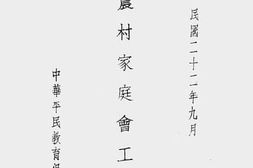 民國二十二年九月
農村家庭會工
中華平民教育